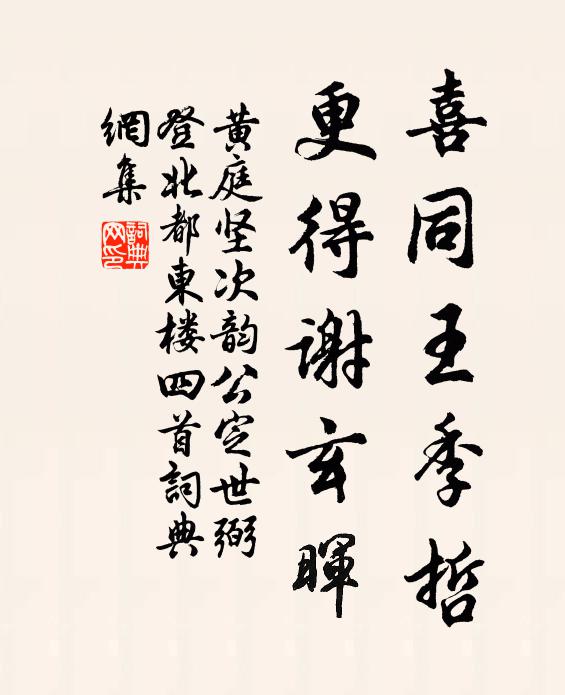 喜同王季哲
更得谢玄暉
黄庭坚次韵公定世弼
登北都東楼四首詞典
網集
詞典
网印